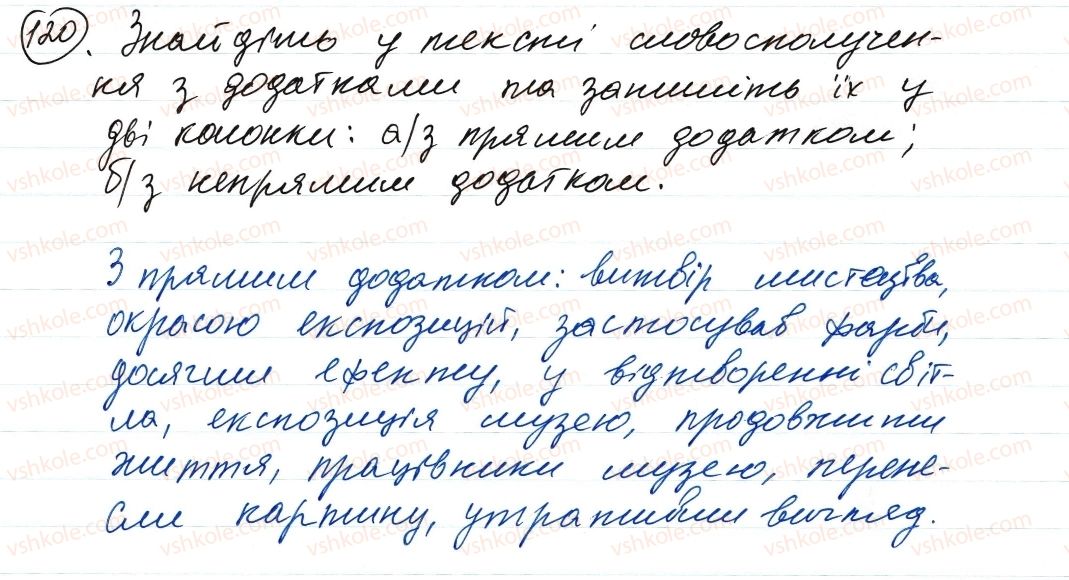 120. Знайдіть у тексті словосполучен-
ня з додатками та запишіть їх у
дві колонки: а/з прямим додатком;
б/з непрямим додатком.
З прямим додатком: витвір мистецтва,
окрасою експозиції, застосував фарби,
досягти ефекту, у відтворенні світ-
ла, експозиція музею, продовжити
життя, працівники музею, перене-
сли картину, утративши вигляд.